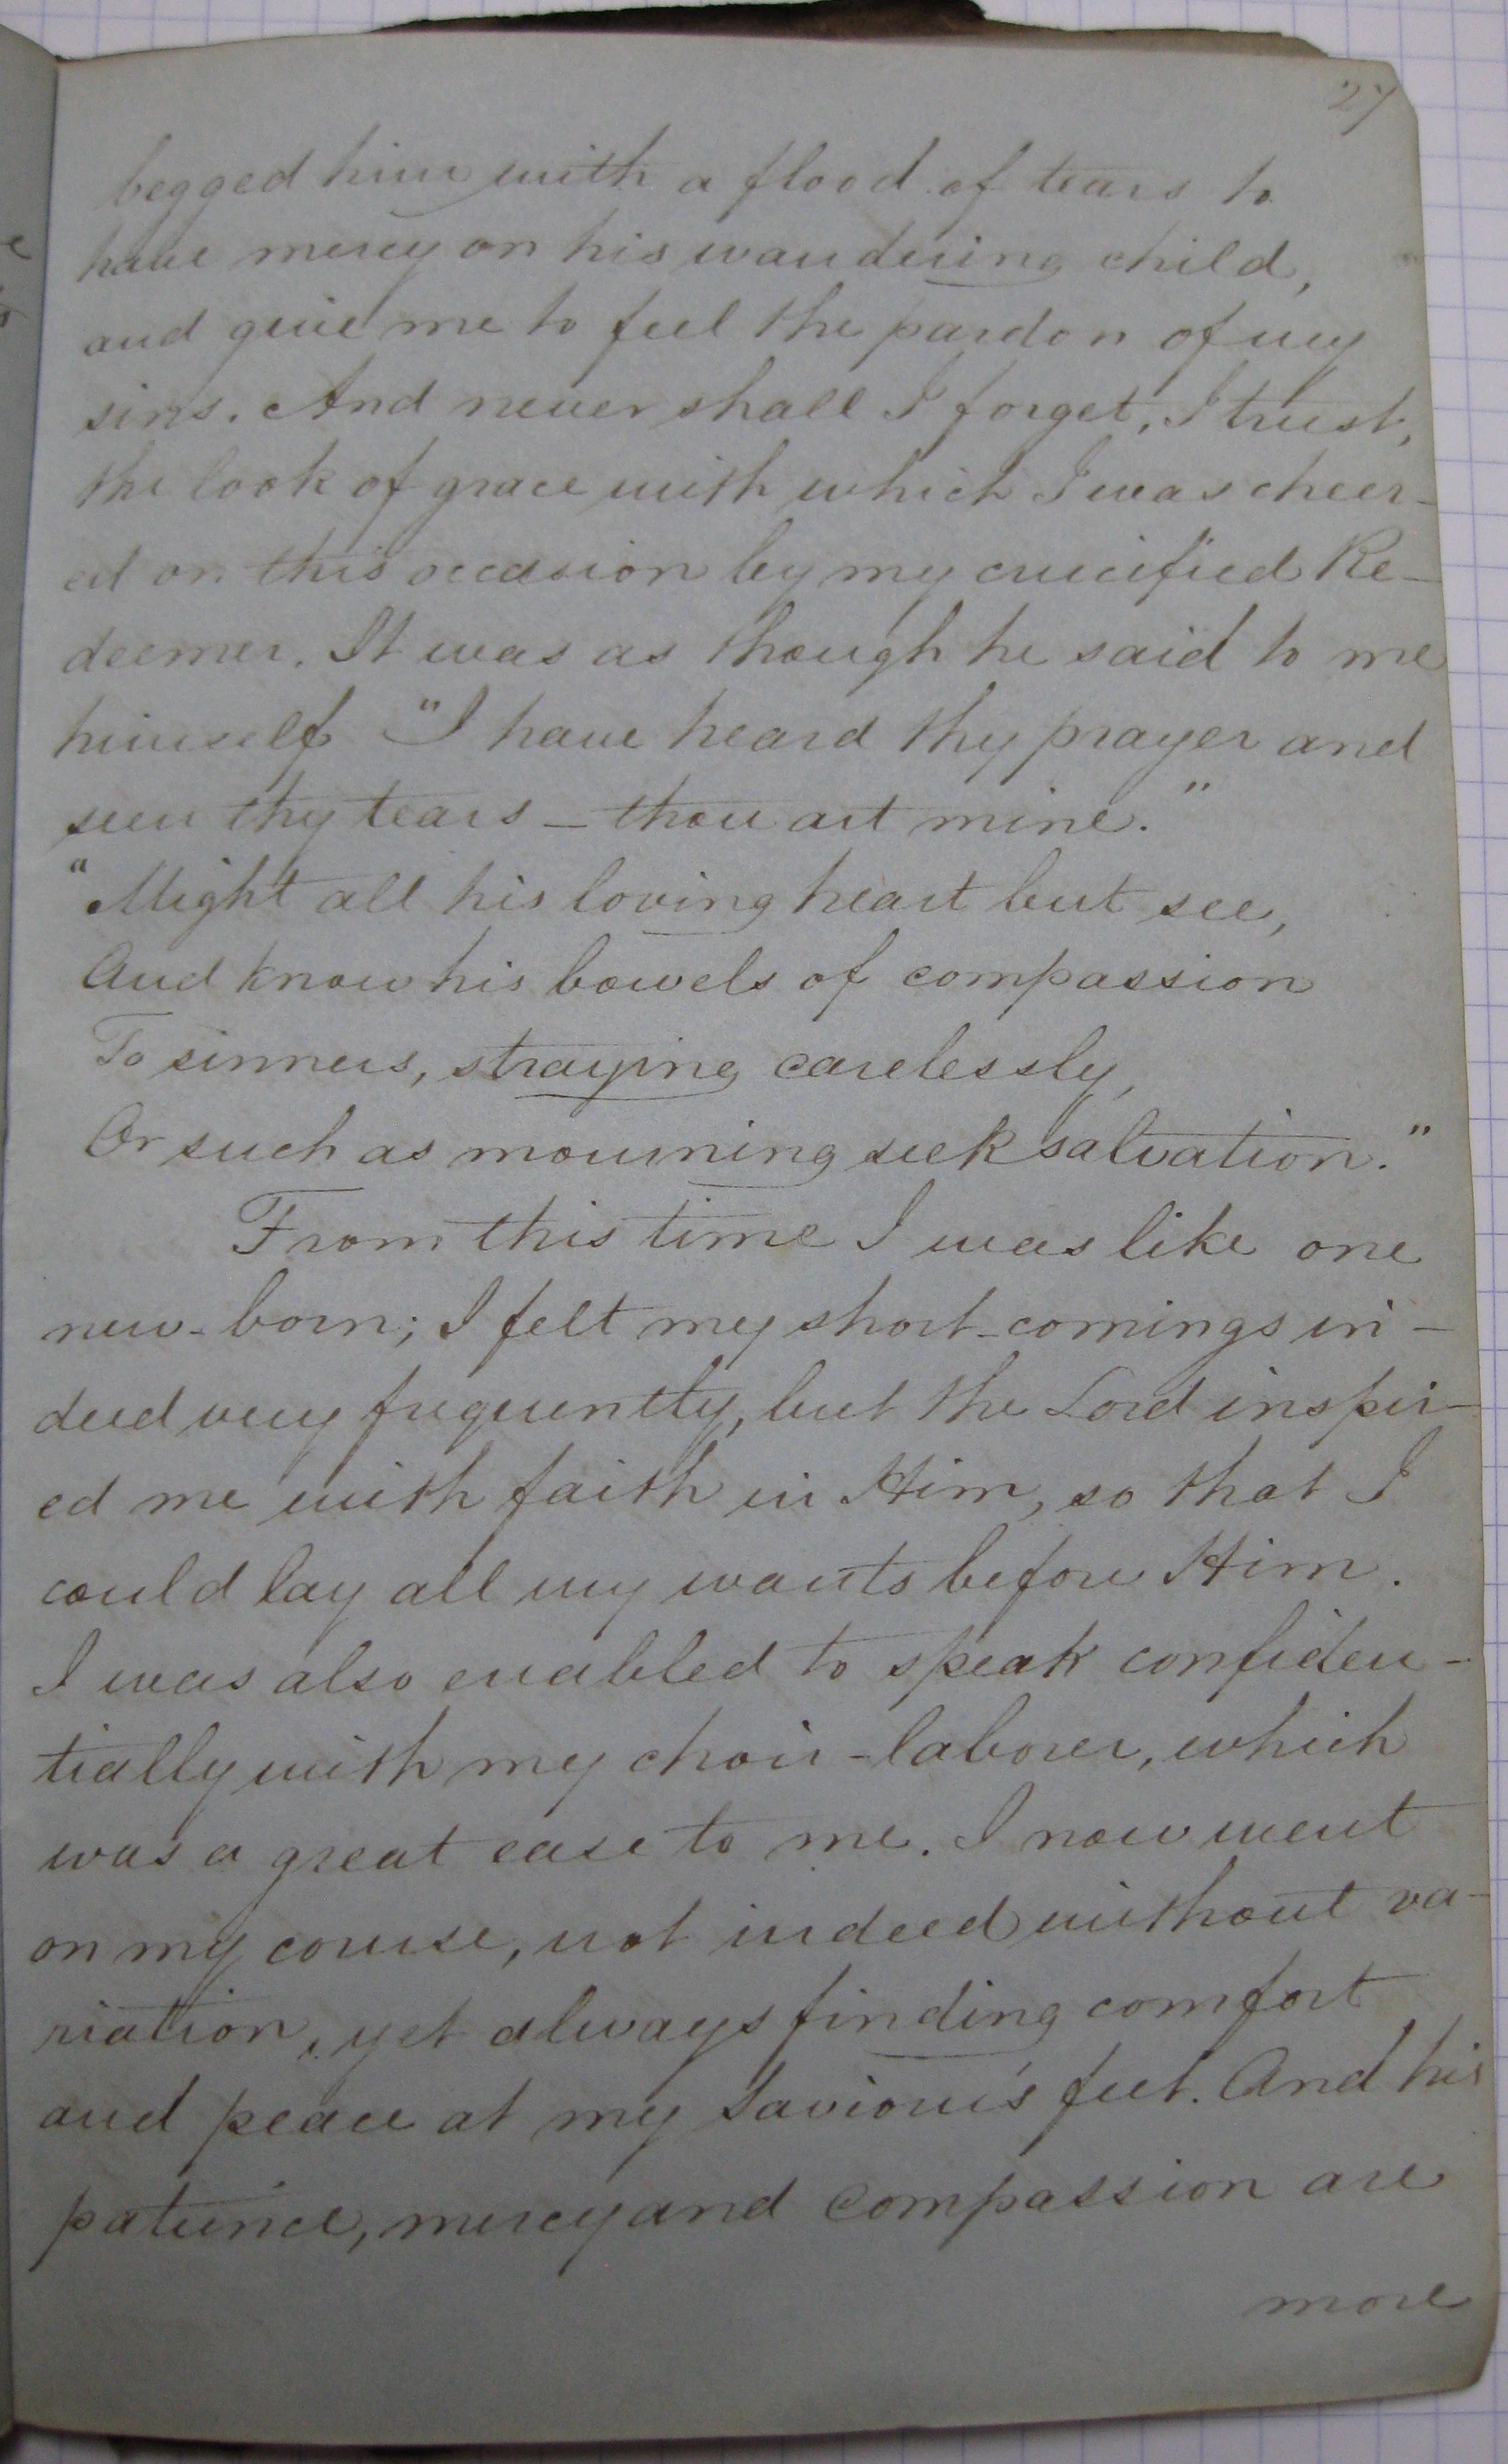 27
begged him with a flood of tears to
have mercy on his wandering child,
and give me to feel the pardon of my
sins. And never shall I forget, I trust,
the look of grace with which I was cheer-
ed on this occasion by my crucified Re-
deemer. It was as though he said to me
himself "I have heard thy prayer and
seen thy tears - thou art mine."
"Might all his loving heart but see,
And know his bowels of compassion
To sinners, straying carelessly,
Or such as mourning seek salvation."
From this time I was like one
new-born; I felt my short-comings in-
deed very frequently, but the Lord inspir-
ed me with faith in Him, so that I
could lay all my wants before Him.
I was also enabled to speak confiden-
tially with my choir-laborer, which
was a great ease to me. I now went
on my course, not indeed without va-
riation, yet always finding comfort
and peace at my Saviour's feet. And his
patience, mercy and compassion are
more